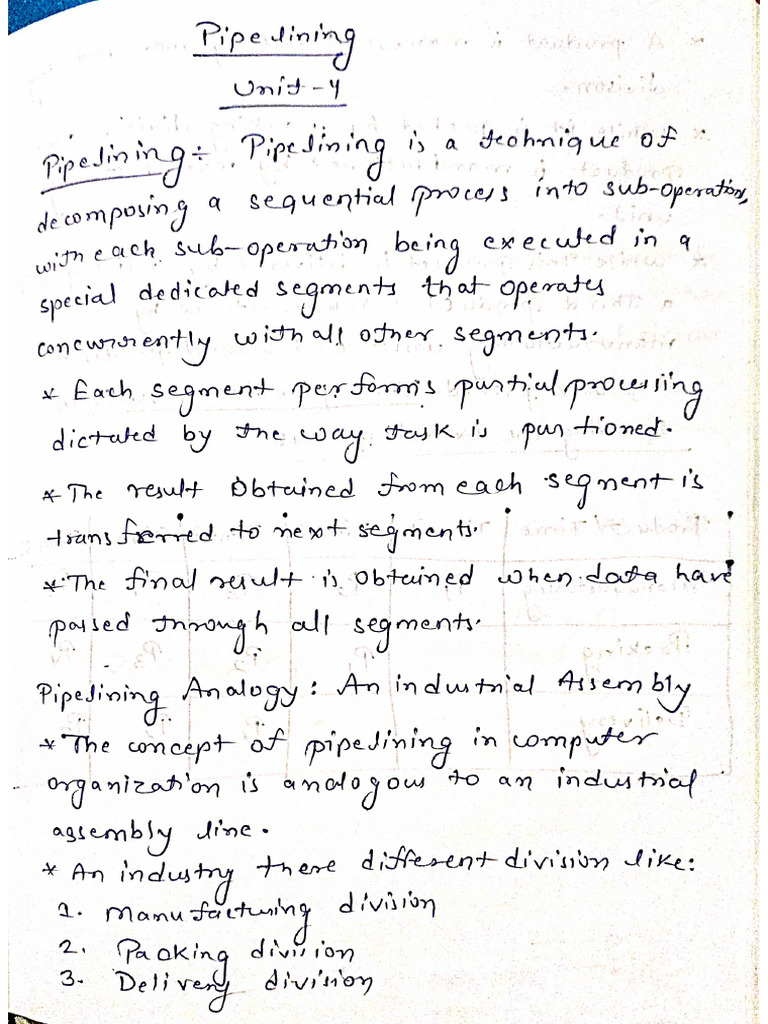 Pipelining
Unit-4
Pipelining ÷ Pipelining is a technique of
decomposing a sequential process into sub-operation,
with each sub-operation being executed in a
special dedicated segments that operates
concurrently with all other segments.
* Each segment performs partial processing
dictated by the way task is partioned.
* The result obtained from each segment is
transferred to next segments.
* The final result is obtained when data have
passed through all segments.
Pipelining Analogy: An industrial Assembly
* The concept of pipelining in computer
organization is analogous to an industrial
assembly line.
* An industry there different division like:
1. Manufacturing division
2. Packing division
3. Delivery division